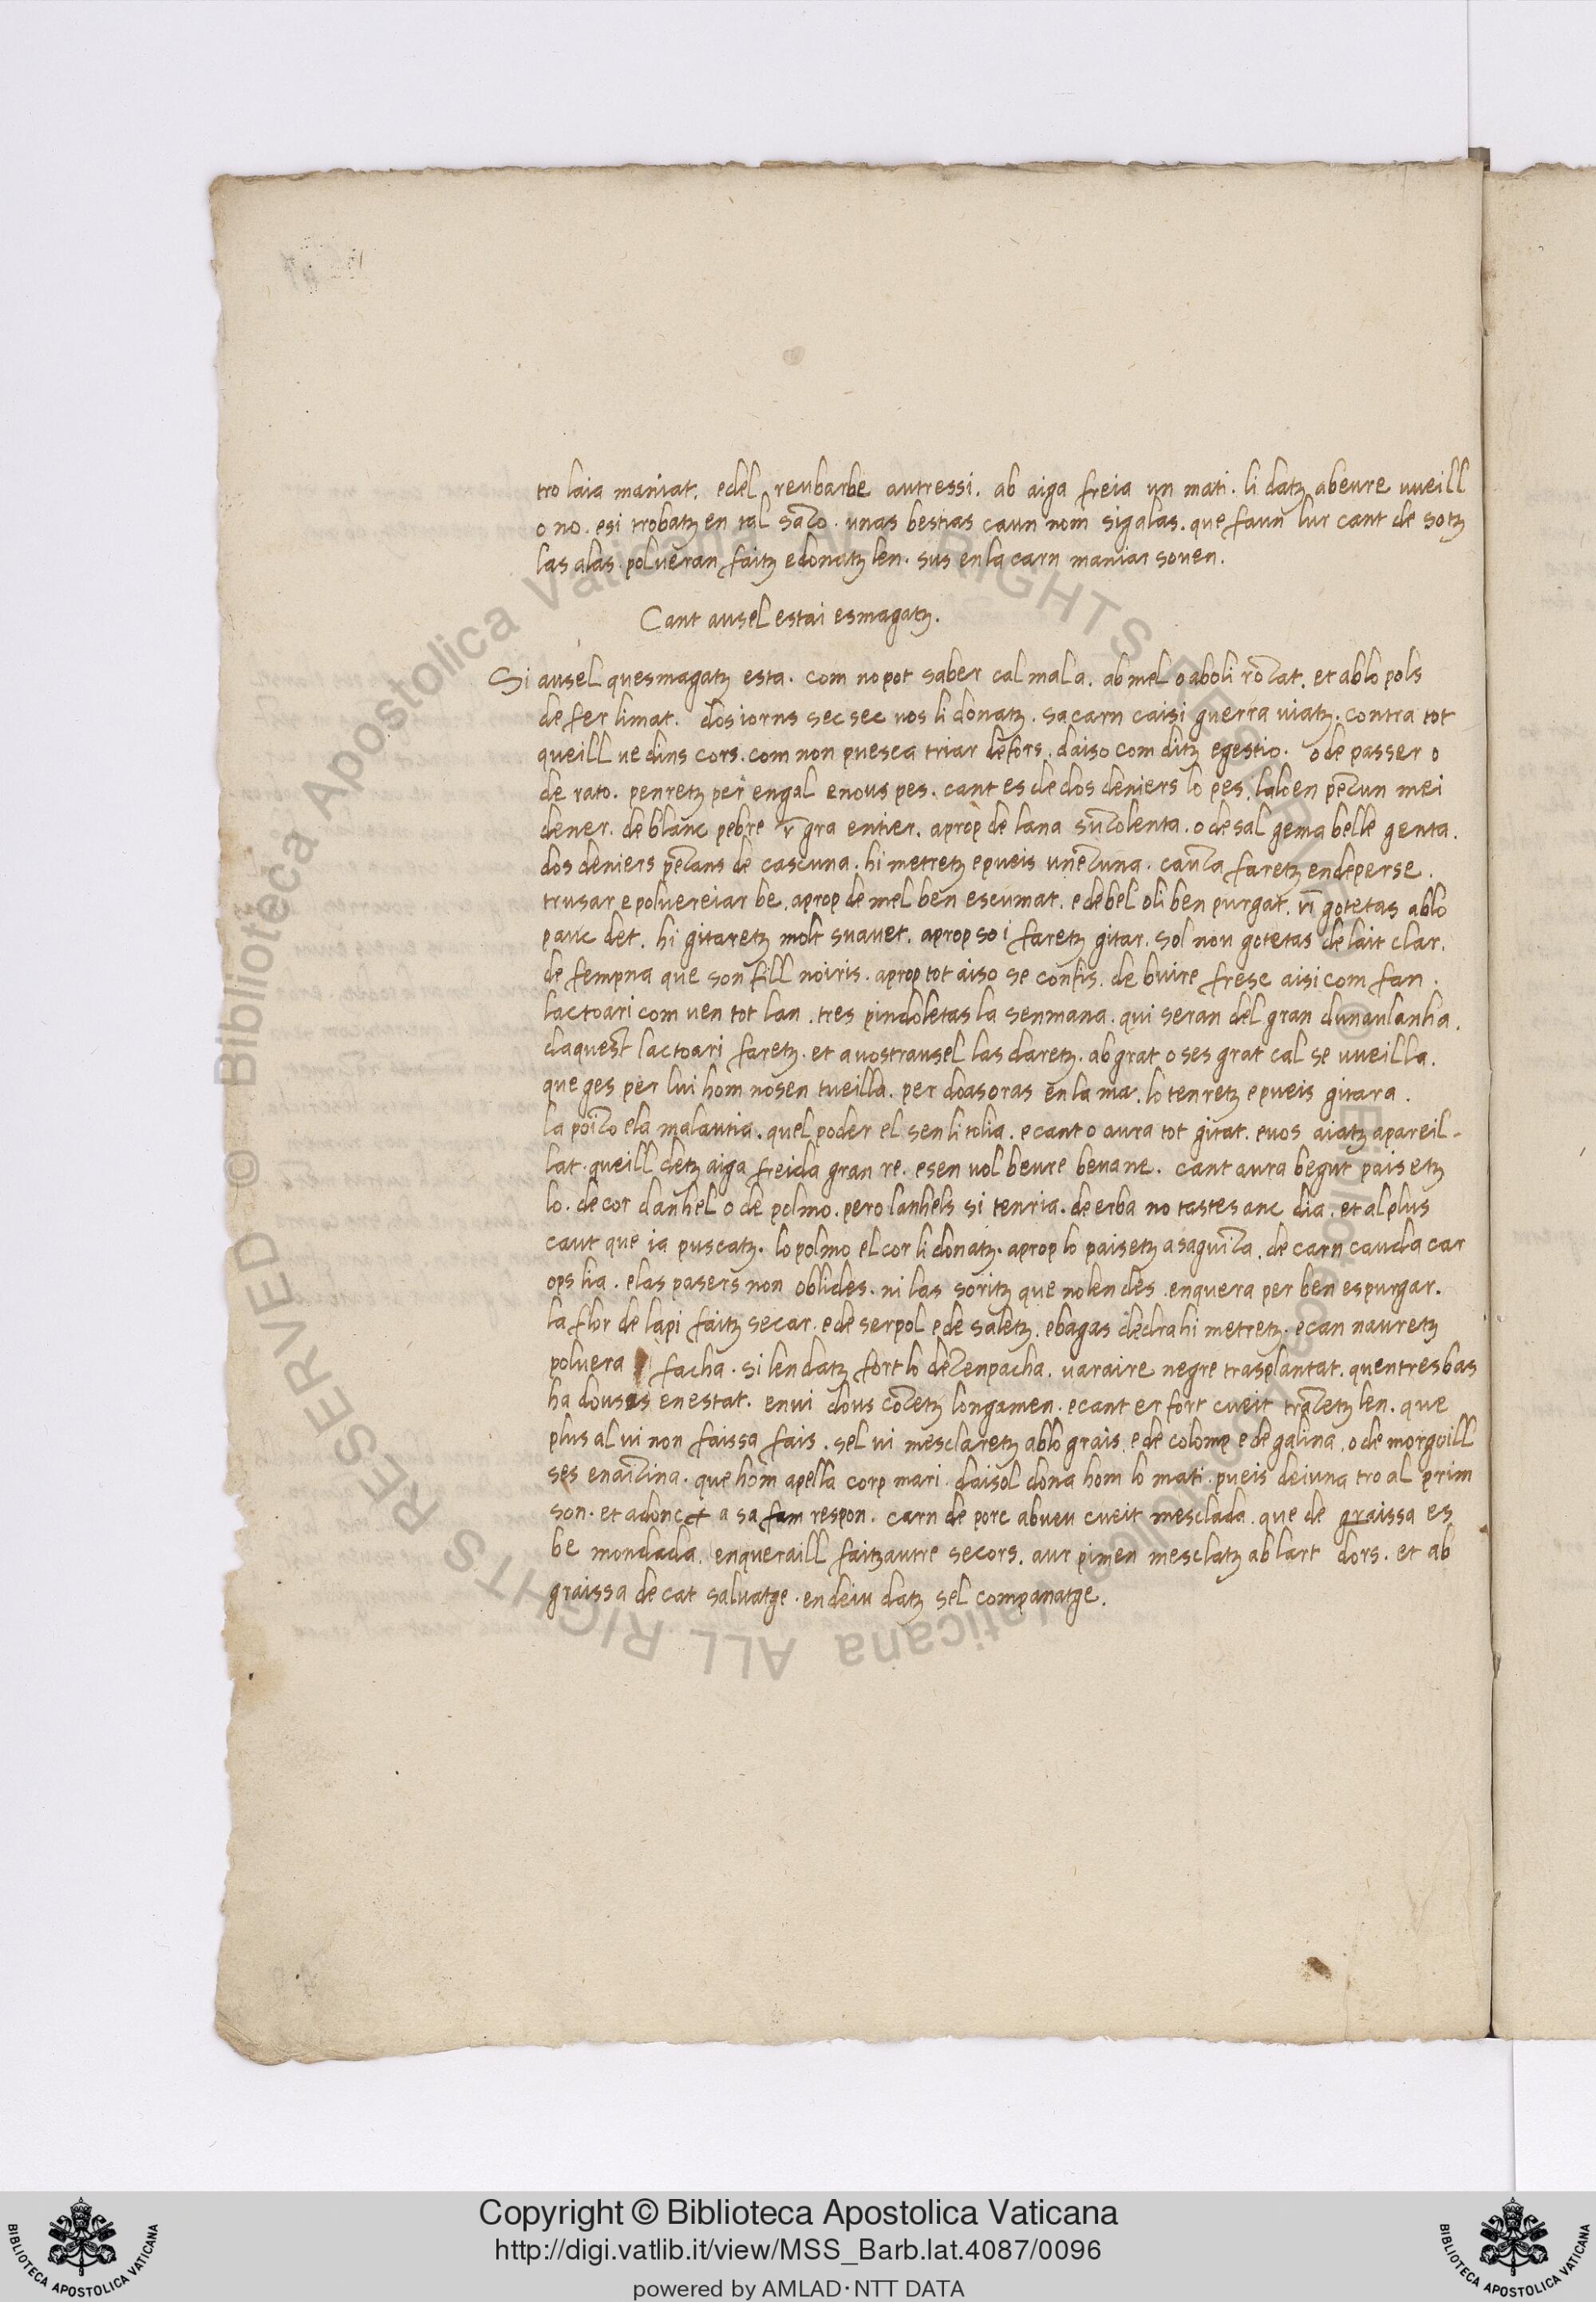 tro laia maniat. edel reubarbe autressi. ab aiga freia un mati. li datz abeure uueill
o no. esi trobatz en tal sazo. unas bestias caun nom sigalas. que faun lur cant de sotz
las alas. polueran faitz edonatz len. sus enla carn maniar souen.
Cant ausel estai esmagatz.
Si ausel quesmagatz esta. com no pot saber cal mal a. ab mel o aboli rozat. et ablo pols
de fer limat. dos iorns sec sec uos li donatz. sa carn caisi guerra uiatz. contra tot
queill ue dins cors. com non puesca triar defors. daiso com ditz egestio. o de passer o
de rato. penretz per engal enous pes. cant es de dos deniers lo pes. laloen pezun mei
dener. de blanc pebre v gra entier. aprop de lana suzolenta. o desal gema belle genta.
dos deniers pezans de cascuna. hi metretz epueis unezuna. cauza faretz endeperse.
trusar epoluereiar be. aprop de mel ben escumat. edebel oli ben purgat. vi gotetas ablo
pauc det. hi gitaretz molt suauet. aprop so i faretz gitar. sol nou gotetas de lait clar.
de fempna que son fill noiris. aprop tot aiso se confis. de buire fresc aisi com fan.
lactoari com uen tot lan. tres pindoletas la senmana. qui seran del gran dunaulanha.
daquest lactoari faretz. et auostrausel las daretz. ab grat o ses grat cal se uueilla.
que ges per lui hom nosen tueilla. per doas oras en la ma. lo tenretz epueis gitara.
la poizo ela malautia. quel poder el sen li tolia. ecant o aura tot gitat. euos aiatz apareil-
lat. queill detz aiga freida gran re. esen uol beure beuane. cant aura begut paisetz
lo. de cor danhel o de polmo. pero lanhels si tenria. de erba no tastes anc dia. et al plus
caut que ia puscatz. lo polmo el cor li donatz. aprop lo paisetz asaguiza. de carn cauda car
ops lia. elas pasers non oblides. ni las soritz que nolen des. enquera per ben espurgar.
la flor de lapi faitz secar. ede serpol ede saletz. ebagas dedra hi metretz. ecan nauretz
poluera facha. si len datz fort lo dezenpacha. uaraire negre trasplantat. quentresbas
ha dousas enestat. enui dous cozetz longamen. ecant er fort cueit trazetz len. que
plus al ui non faissa fais. sel ui mesclaretz ablo grais. ede colomp ede galina. o de morguill
ses enaizina. que hom apella corp mari. daisol dona hom lo mati. pueis deiuna tro al prim
son. et adoncx a sa fam respon. carn de porc abueu cueit mesclada. que de graissa es
be mondada. enqueraill faitzautre secors. aur pimen mesclatz ab lart dors. et ab
graissa de cat saluatge. endeiu datz sel companatge.
Copyright © Biblioteca Apostolica Vaticana
http://digi.vatlib.it/view/MSS_Barb.lat.4087/0096
powered by AMLAD·NTT DATA